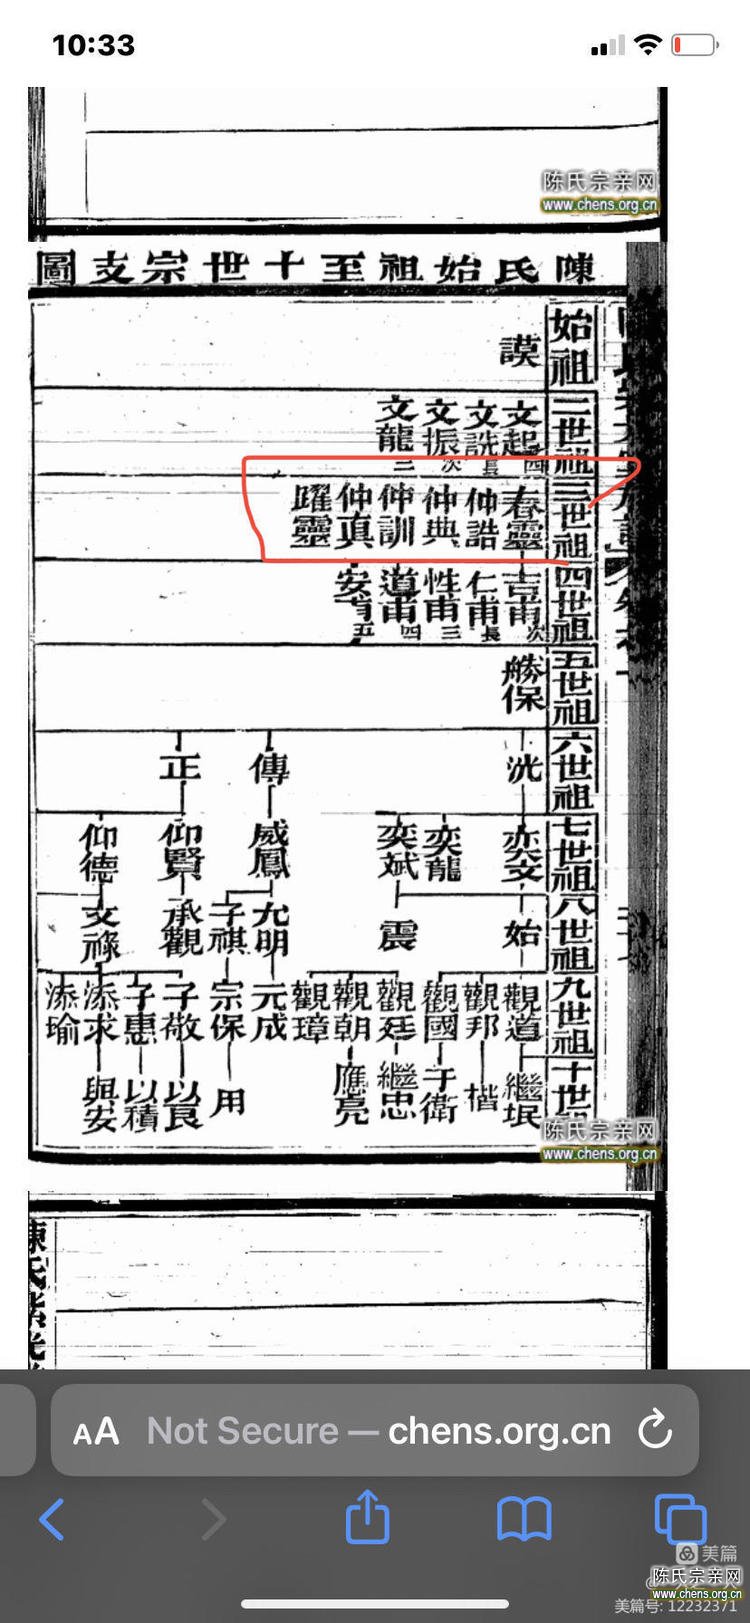 10:33
陈氏宗亲网
www.chens.org.cn
陳氏始祖至十世宗支圖
始祖
謨
二世祖
文起四
文詵長
文振次
文龍三
三世祖
春靈
仲誥
仲典
仲訓
仲真
躍靈
四世祖
吉甫次
仁甫長
性甫三
道甫四
安甫五
五世祖
勝保
六世祖
洸
傳
正
七世祖
奕文
奕龍
奕斌
威鳳
仰賢
仰德
八世祖
始
震
允明
子祺
承觀
文祿
九世祖
觀道
觀邦
觀國
觀廷
觀朝
觀璋
元成
宗保
子敬
子惠
添求
添瑜
十世
繼垊
楷
于衛
繼忠
應亮
用
以良
以積
與安
陈氏宗亲网
www.chens.org.cn
陳氏
AA Not Secure — chens.org.cn
美篇
陈氏宗亲网
www.chens.org.cn
美篇号: 12232371